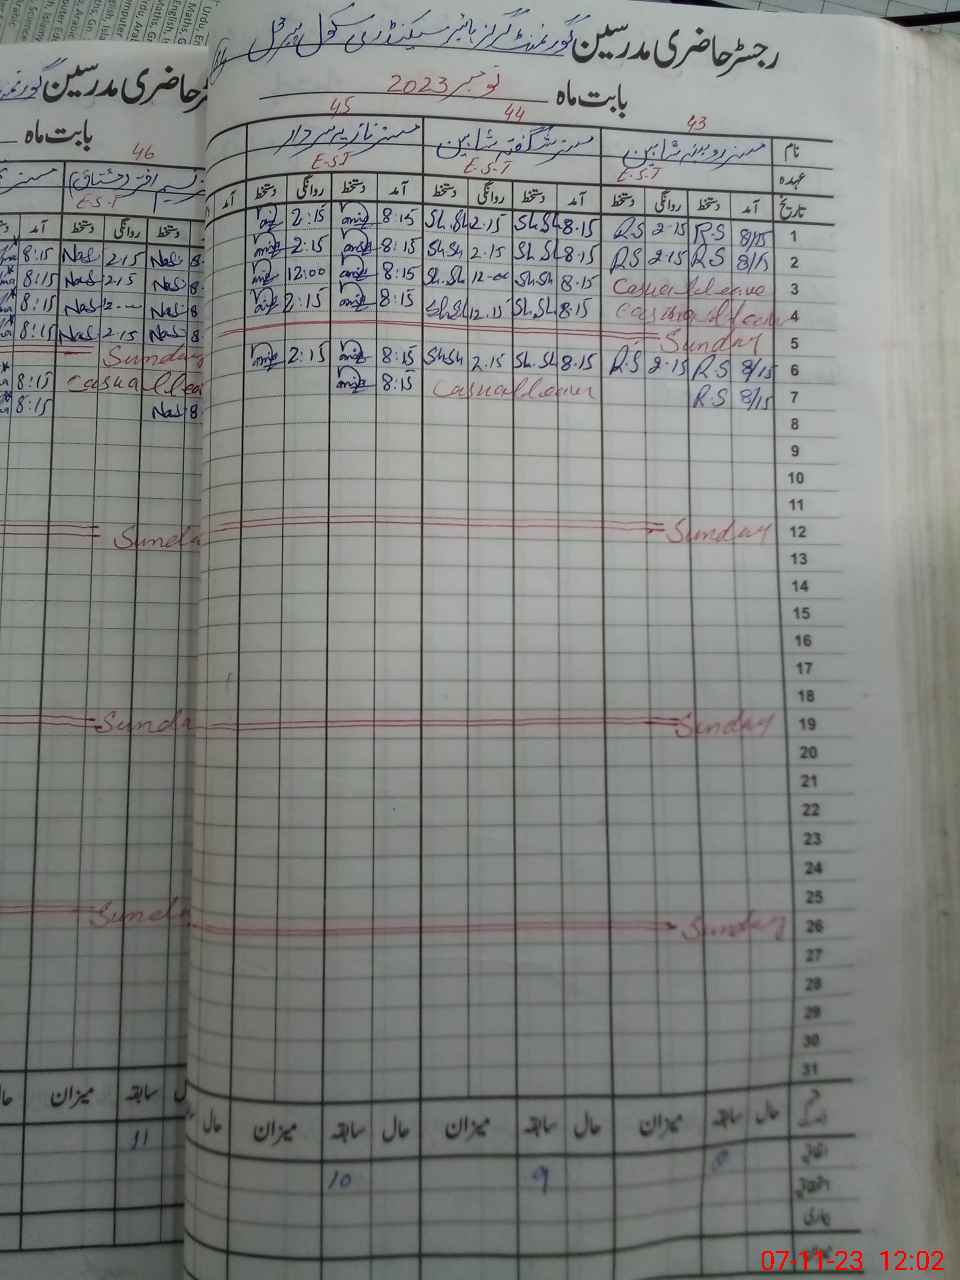 رجسٹر حاضری مدرسین گورنمنٹ گرلز ہائیر سیکنڈری سکول
بابت ماہ نومبر 2023
43 44 45
نام مسز روبینہ شاہین مسز شگفتہ شاہین مسز نازیہ سردار
عہدہ E.S.T E.S.T E.S.T
تاریخ آمد دستخط روانگی دستخط آمد دستخط روانگی دستخط آمد دستخط روانگی دستخط آمد
1 8/15 R.S 2-15 R.S 8.15 Sh.Sh 2.15 Sh.Sh 8:15 2:15
2 8/15 R.S 2-15 R.S 8.15 Sh.Sh 2.15 Sh.Sh 8:15 2:15
3 Casual leave 8.15 Sh.Sh 12-00 Sh.Sh 8:15 12:00
4 Casual leave 8.15 Sh.Sh 12.15 Sh.Sh 8:15 2:15
5 Sunday
6 8/15 R.S 2-15 R.S 8.15 Sh.Sh 2.15 Sh.Sh 8:15 2:15
7 8/15 R.S Casual leave 8:15
8
9
10
11
12 Sunday
13
14
15
16
17
18
19 Sunday
20
21
22
23
24
25
26 Sunday
27
28
29
30
31
حال سابقہ میزان حال سابقہ میزان حال سابقہ میزان حال
اتفاقیہ
9 10
بیماری
رجسٹر حاضری مدرسین
بابت ماہ
46
E.S.T
دستخط روانگی دستخط آمد
Nas 2.15 Nas 8:15
Nas 2.15 Nas 8:15
Nas Nas 8:15
Nas 2.15 Nas 8:15
Sunday
Casual lea 8:15
Nas 8:15
Sunda
Sunda
Sunda
سابقہ میزان
11
07-11-23 12:02